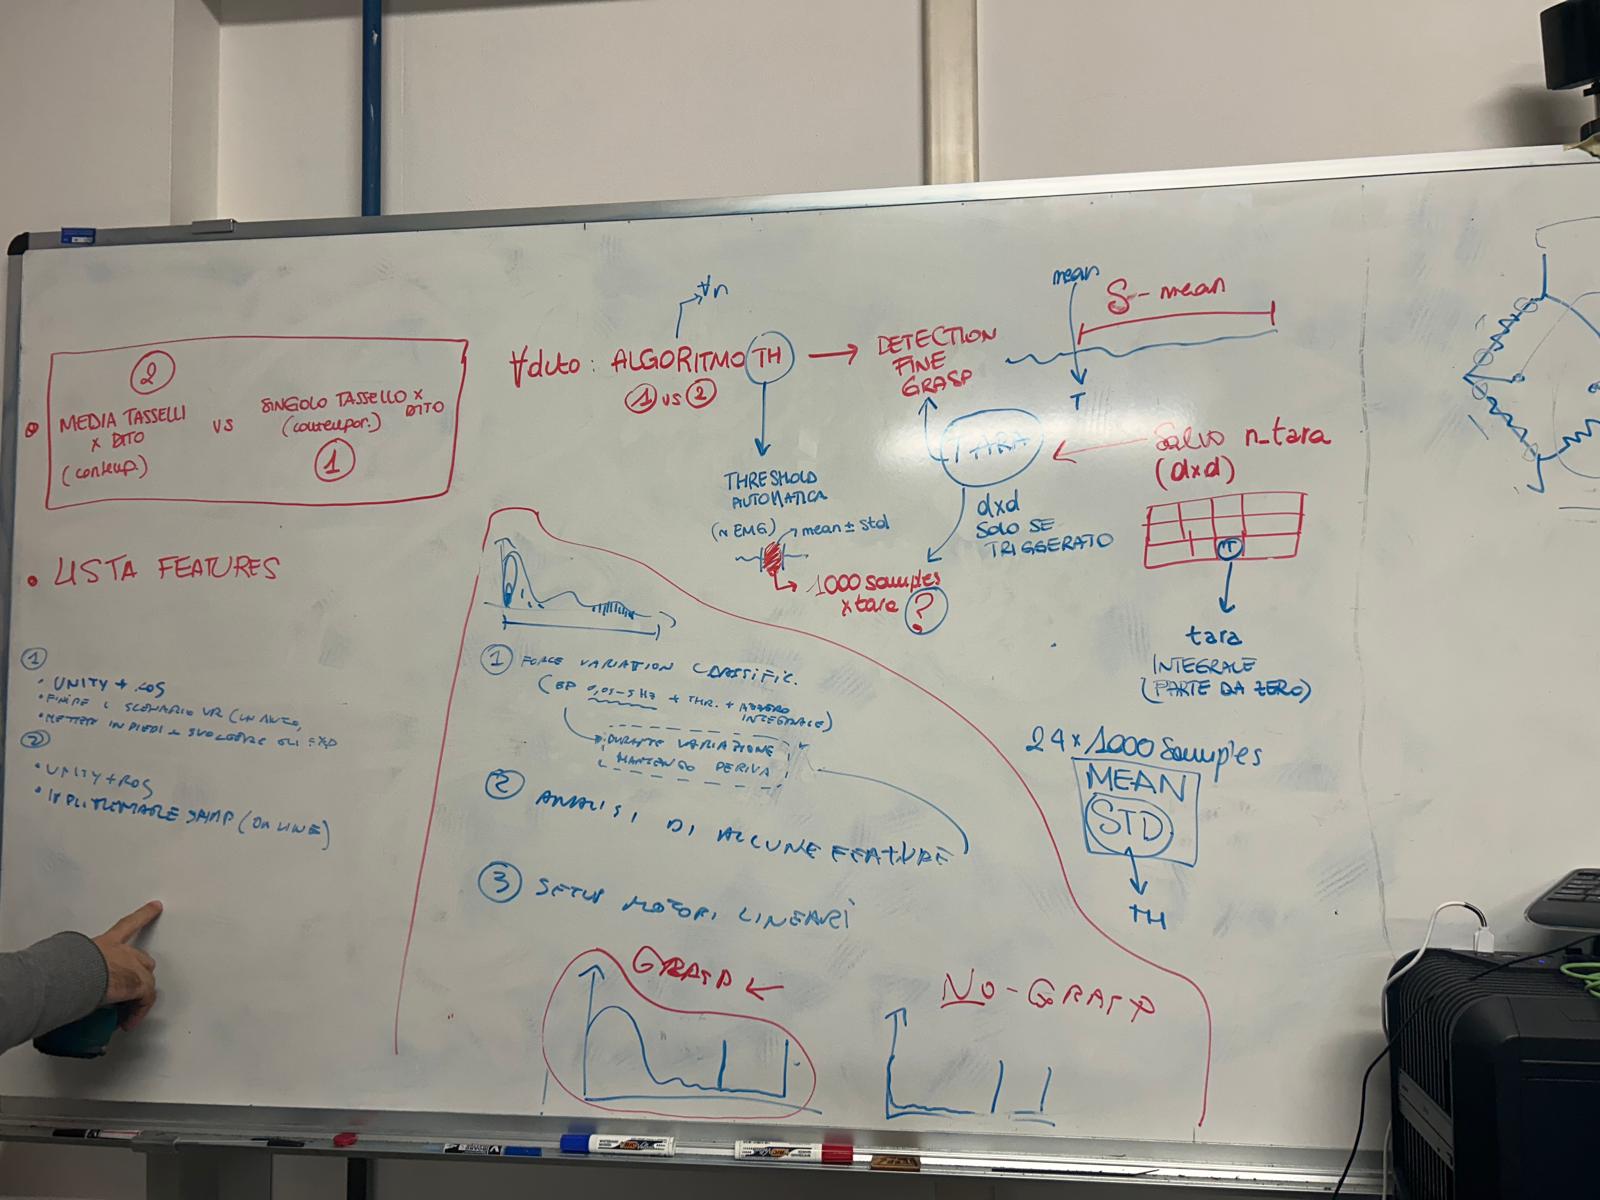 ②
MEDIA TASSELLI
x DITO
(contemp.)
VS
SINGOLO TASSELLO x
DITO
(contempor.)
①
• LISTA FEATURES
①
• UNITY + ROS
• FINIRE SCENARIO VR
• METTERE IN PIEDI
②
• UNITY + ROS
(ONLINE)
∀n
ALGORITMO TH
① VS ②
DETECTION
FINE
GRASP
THRESHOLD
AUTOMATICA
(N EMG)
mean ± std
1000 samples
x tara
?
TARA
dxd
SOLO SE
TRIGGERATO
mean
S - mean
T
Salvo n_tara
(dxd)
tara
INTEGRALE
(PARTE DA ZERO)
24 x 1000 Samples
MEAN
STD
TH
① FORCE VARIATION CLASSIFIC.
(BP 0,05-5 Hz + THR. + AZZERO
INTEGRALE)
DURANTE VARIAZIONE
MANTENGO DERIVA
② ANALISI DI ALCUNE FEATURE
③ SETUP MOTORI LINEARI
GRASP
NO-GRASP